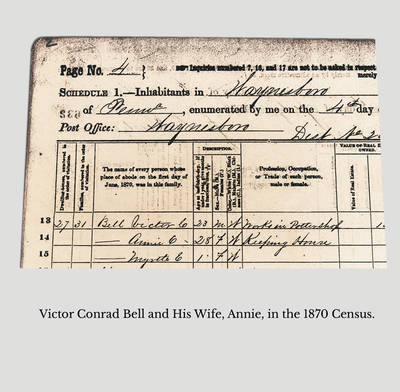 Page No. 4 } Inquiries numbered 7, 16, and 17 are not to be asked in respect
merely
SCHEDULE 1.—Inhabitants in Waynesboro
of Penna, enumerated by me on the 4th day
Post Office: Waynesboro Dist No 2
Dwelling-houses, numbered in the order of visitation.
Families, numbered in the order of visitation.
The name of every person whose place of abode on the first day of June, 1870, was in this family.
DESCRIPTION.
Profession, Occupation, or Trade of each person, male or female.
VALUE OF REAL ESTATE OWNED.
Value of Real Estate.
13 27 31 Bell Victor C 23 M W Works in Pottershop
14 — Annie C - 28 F W Keeping House
15 — Myrtle C 1 F W
Victor Conrad Bell and His Wife, Annie, in the 1870 Census.